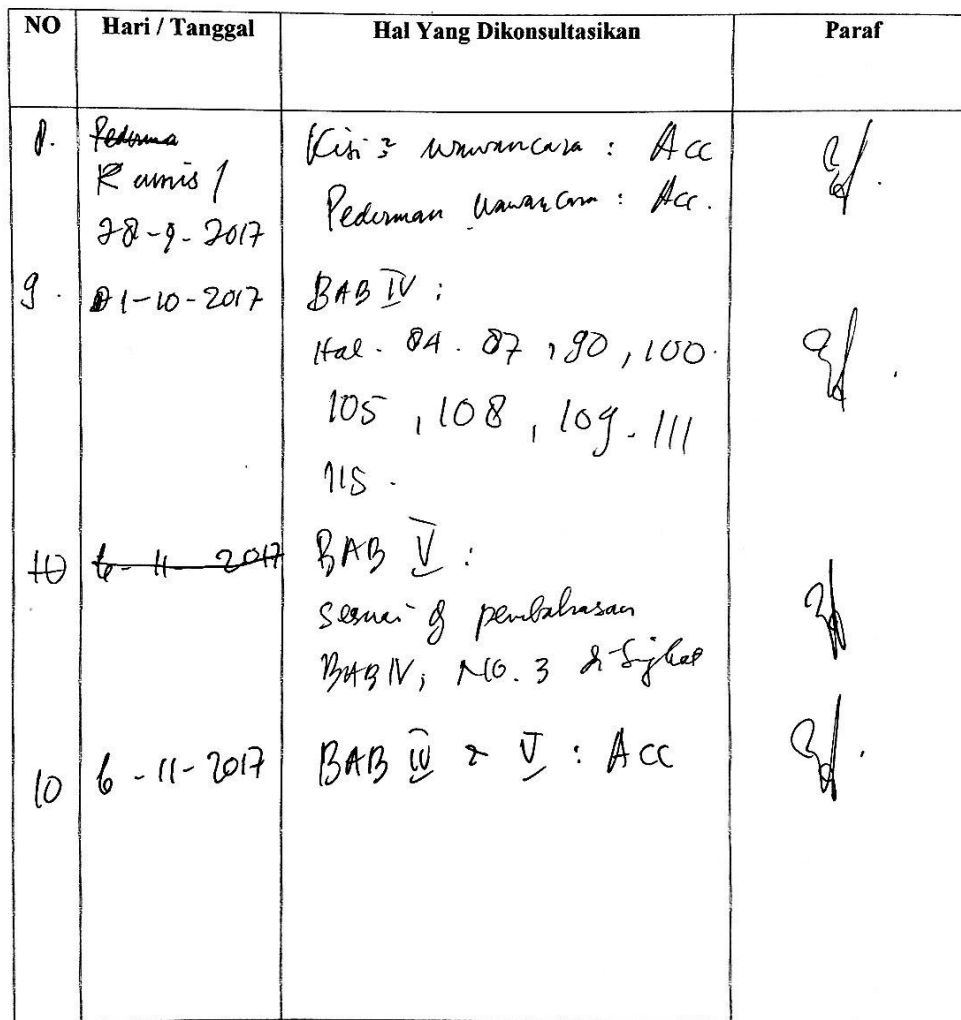 NO Hari / Tanggal Hal Yang Dikonsultasikan Paraf
8. Pedoma Kisi2 wawancara : Acc
Kamis / Pedoman wawancara : Acc.
28-9-2017
9. 31-10-2017 BAB IV :
Hal. 84. 87, 90, 100.
105, 108, 109. 111
115.
10 6-11-2017 BAB V :
Sesuai pembahasan
BAB IV, NO. 3
10 6-11-2017 BAB IV & V : Acc